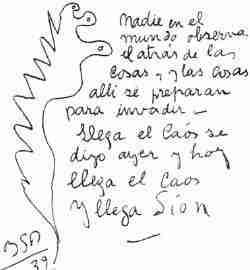 Nadie en el
mundo observa
el atrás de las
cosas, y las cosas
allí se preparan
para invadir -
llega el Caós se
dijo ayer y hoy
llega el Caos
Y llega Sion
BSP
39